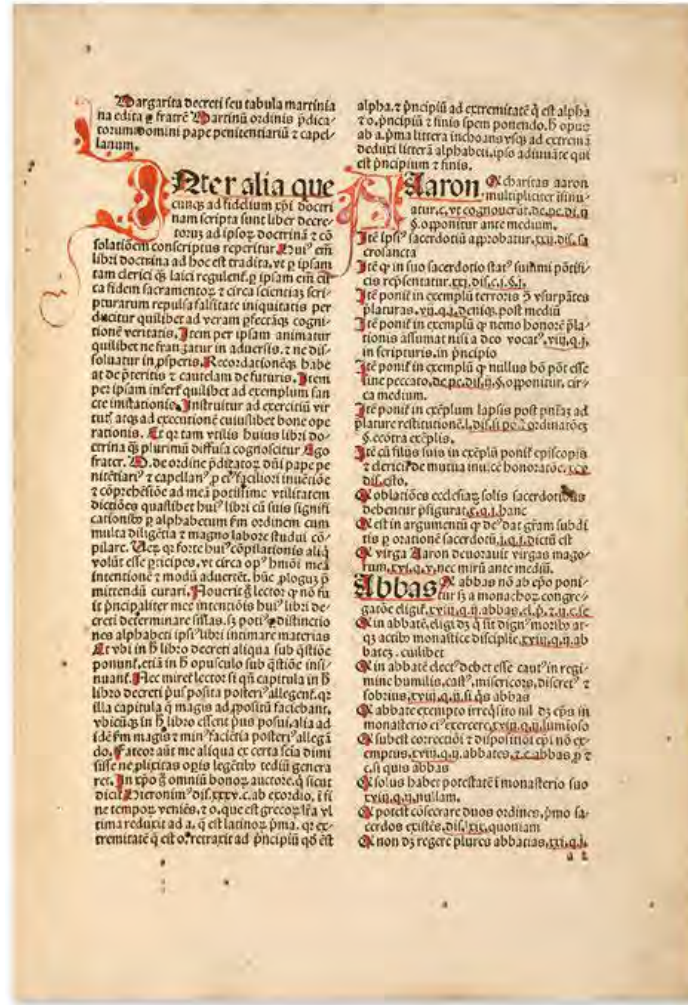 Margarita decreti seu tabula martinia
na edita ꝑ fratrē Martinū ordinis p̄dica
torum domini pape penitentiariū ⁊ capel
lanum.
INter alia que
cunqꝫ ad fidelium xp̄i doctri
nam scripta sunt liber decre
torꝫ ad ipsoꝝ doctrinā ⁊ cō
solatiōem conscriptus reperitur. Huiꝰ em̄
libri doctrina ad hoc est tradita, vt ꝑ ipsam
tam clerici qꝫ laici regulent᷑. ꝑ ipsam em̄
ca fidem sacramentoꝝ ⁊ circa scientiaꝫ scri
pturarum repulsa falsitate iniquitatis per
ducitur quilibet ad veram ꝑfectāqꝫ cogni
tionē veritatis. Item per ipsam animatur
quilibet ne frangatur in aduersis. ⁊ ne dis
soluatur in ꝓsperis. Recordationēqꝫ habe
at de p̄teritis ⁊ cautelam de futuris. Item
per ipsam infert᷑ quilibet ad exemplum san
cte imitationis. Instruitur ad exercitiū vir
tut᷑ atqꝫ ad executionē cuiuslibet bone ope
rationis. Et qꝛ tam vtilis huius libri do
ctrina qꝫ plurimū diffusa cognoscitur Ego
frater. M. de ordine p̄dicatoꝝ dn̄i pape pe
nitētiariꝰ ⁊ capellanꝰ, ꝓ eiꝰ faciliori inuētiōe
⁊ cōprehēsiōe ad meā potissime vtilitatem
dictiōes quaslibet huiꝰ libri cū suis signifi
cationibꝫ ꝑ alphabetum fm ordinem cum
multa diligētia ⁊ magno labore studui cō
pilare. Ueꝝ qꝛ forte huiꝰ cōpilationis aliq̄
volūt esse p̄ticipes, vt circa opꝰ hmōi meā
intentionē ⁊ modū aduertēt. hūc ꝓloguꝫ p̄
mittendū curaui. Nouerit g̊ lector ꝙ nō fu
it p̄ncipaliter mee intentiōis huiꝰ libri de
creti determinare sillas. sꝫ potiꝰ distinctio
nes alphabeti ipsiꝰ libri intimare materias
Et vbi in h̄ libro decreti aliqua sub q̄stiōe
ponunt᷑, etiā in h̄ opusculo sub q̄stiōe insi
nuant᷑. Nec miret᷑ lector si qn̄ capitula in h̄
libro decreti p̄us posita posteriꝰ allegent᷑. qꝛ
illa capitula ꝙ magis ad ꝓpositū faciebant,
vbicūqꝫ in h̄ libro essent p̄us posui, alia ad
idē fm magis ⁊ minꝰ faciētia posteriꝰ allegā
do. Fateor aūt me aliqua ex certa scīa dimi
sisse ne ꝓlixitas opis legētibꝫ tediū genera
ret. In xp̄o g̊ omniū bonoꝝ auctore, ꝙ sicut
dicit Hieronimꝰ dis. xxxv. c. ab exordio, ī fi
ne tempoꝝ veniēs, ⁊ o, que est grecoꝝ lr̄a vl
tima reduxit ad a, q̄ est latinoꝝ p̄ma. qꝛ ex
tremitatē q̄ est o, retraxit ad p̄ncipiū qd̄ est
alpha. ⁊ p̄ncipiū ad extremitatē q̄ est alpha
⁊ o, p̄ncipiū ⁊ finis spem ponendo. h̄ opus
ab a. p̄ma littera inchoans vsqꝫ ad extremā
deduxi litterā alphabeti, ipso adiuuāte qui
est p̄ncipium ⁊ finis.
AAaron. Qꝫ charitas aaron
multipliciter īsinu
atur. c. vt cognouerūt. de. pe. di. ij
§. opponitur ante medium.
Itē ipsiꝰ sacerdotiū approbatur. xxij. dis. sa
crosancta
Itē ꝙ in suo sacerdotio statꝰ summi pōtifi
cis rep̄sentatur. xxj. dis. c. j. §. j.
Itē ponit᷑ in exemplū terroris ꝯ̄ vsurpātes
p̄laturas. vij. q. j. deniqꝫ. post mediū
Itē ponit᷑ in exemplū ꝙ nemo honorē p̄la
tionis assumat nisi a deo vocatꝰ. viij. q. j.
in scripturis. in p̄ncipio
Itē ponit᷑ in exemplū ꝙ nullus hō pōt esse
sine peccato. de. pe. dis. ij. §. opponitur. cir
ca medium.
Itē ponit᷑ in exēplū lapsis post pn̄iaꝫ ad
plature restitutionē. l. dis. si po. ⁊ ordinatoēꝫ
§. econtra exēplis.
Itē cū filijs suis in exēplū ponit᷑ episcopis
⁊ clericꝭ de mutua inuicē honoratōe. xcv
dis. esto.
Qꝫ oblatiōes ecclesiaꝝ solis sacerdotibus
debentur p̄figurat᷑. x. q. j. hanc
Qꝫ est in argumentū ꝙ deꝰ dat gr̄am subdi
tis ꝓ oratione sacerdotū. j. q. j. dictū est
Qꝫ virga Aaron deuorauit virgas mago
rum. xxvj. q. v. nec mirū ante mediū.
Abbas Qꝫ abbas nō ab ep̄o poni
tur sꝫ a monachoꝝ congre
gatōe eligit᷑. xviij. q. ij. abbas. el. p̄. ⁊ ij. c. se
Qꝫ in abbatē, eligi dꝫ ꝙ sit dignꝰ moribꝰ at
qꝫ actibꝰ monastice discipline. xviij. q. ij. ab
bateꝫ. cuilibet
Qꝫ in abbatē electꝰ debet esse cautꝰ in regi
mine humilis, castꝰ, misericors, discretꝰ ⁊
sobrius. xviij. q. ij. si q̄s abbas
Qꝫ abbate exempto irreq̄sito nil dꝫ ep̄s in
monasterio eiꝰ exercere. xviij. q. ij. luminoso
Qꝫ subest correctiōi ⁊ dispositiōi ep̄i nō ex
emptus. xviij. q. ij. abbates. ⁊. c. abbas ꝓ ⁊
c. si quis abbas
Qꝫ solus habet potestatē ī monasterio suo
xviij. q. ij. nullam.
Qꝫ potest cōsecrare duos ordines, p̄mo sa
cerdos existēs. dis. lxix. quoniam
Qꝫ non dꝫ regere plures abbatias. xxj. q. j.
a 2